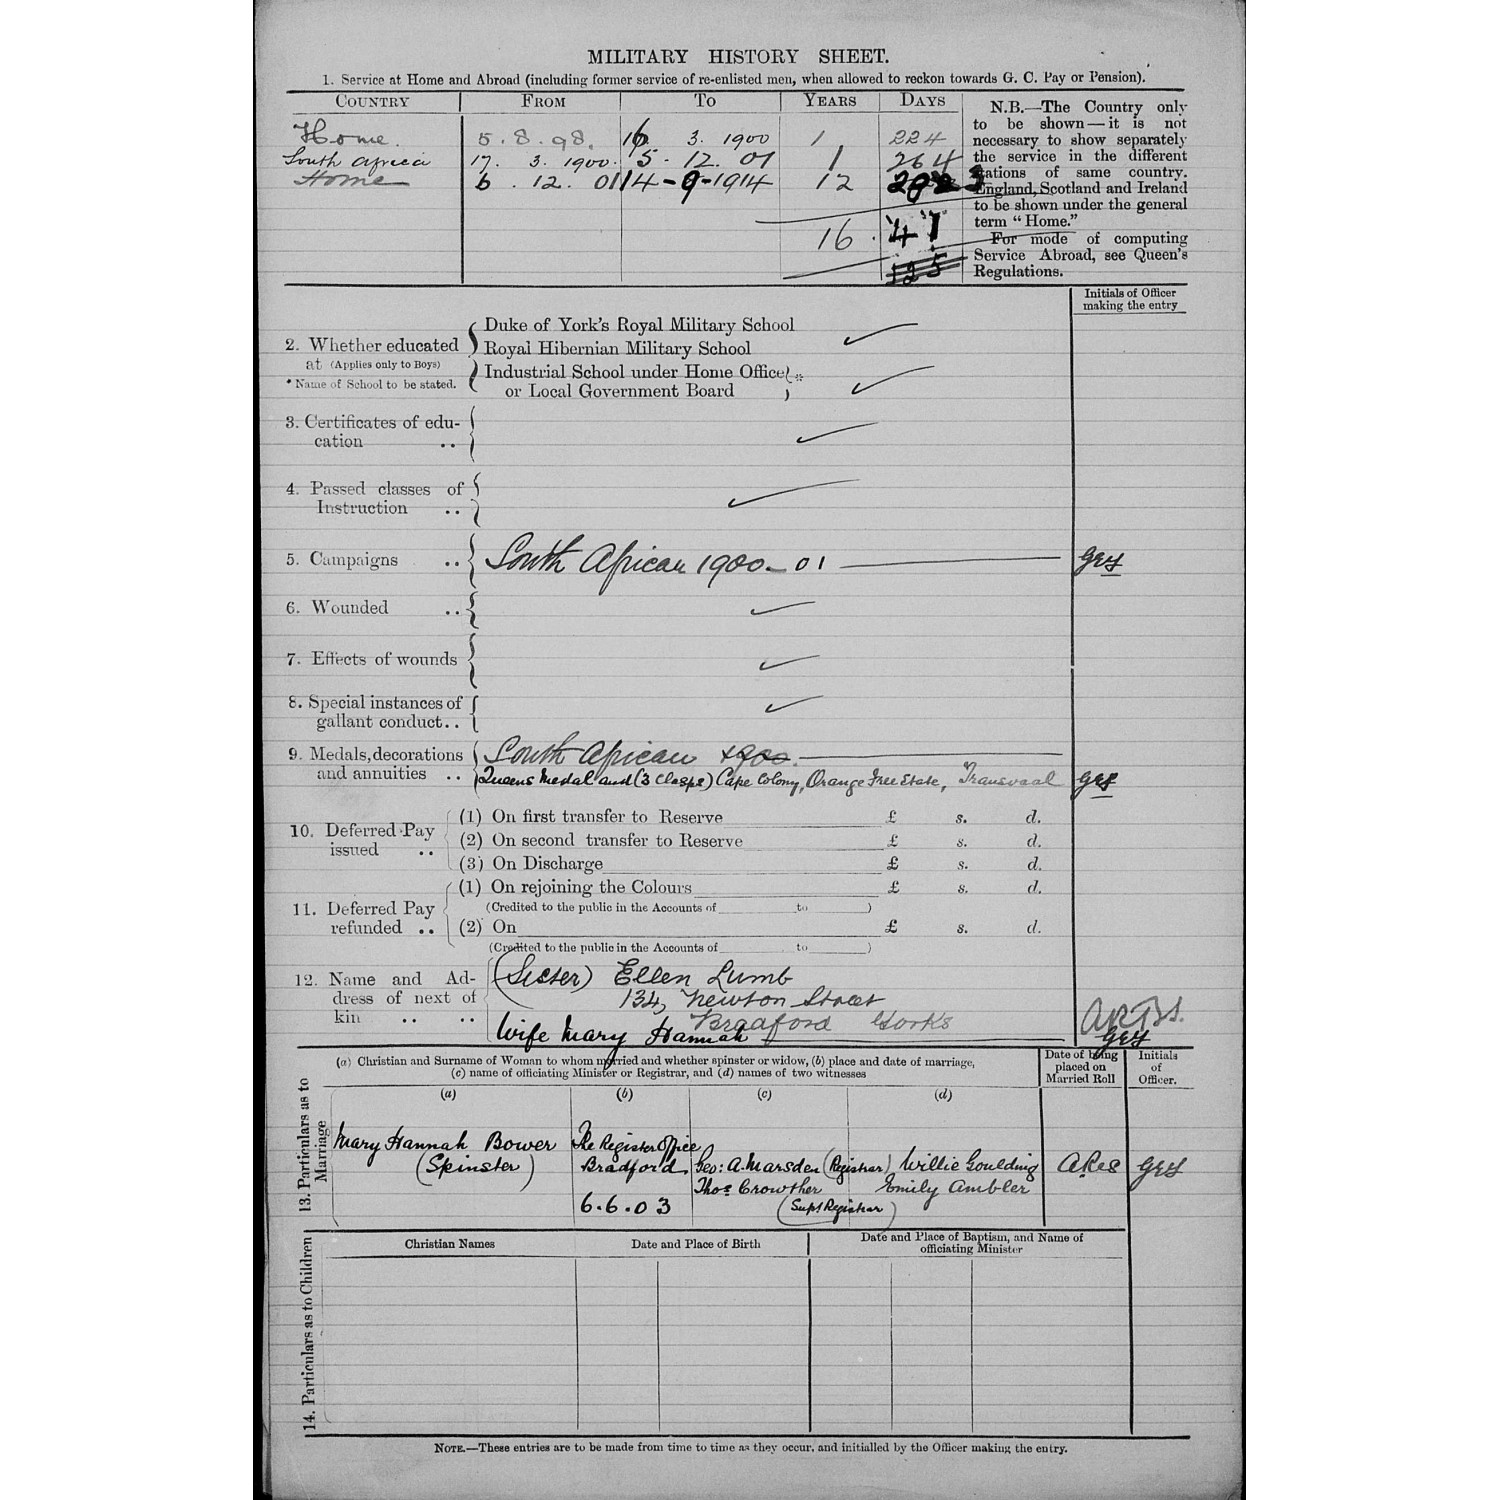 MILITARY HISTORY SHEET.
1. Service at Home and Abroad (including former service of re-enlisted men, when allowed to reckon towards G. C. Pay or Pension).
COUNTRY FROM TO YEARS DAYS
Home. 5.8.98. 16 3. 1900 1 224
South Africa 17. 3. 1900. 5. 12. 01 1 264
Home 6. 12. 01 14-9-1914 12
16. 47
125
N.B.—The Country only
to be shown—it is not
necessary to show separately
the service in the different
stations of same country.
England, Scotland and Ireland
to be shown under the general
term "Home."
For mode of computing
Service Abroad, see Queen's
Regulations.
Initials of Officer
making the entry
2. Whether educated
at (Applies only to Boys)
* Name of School to be stated.
Duke of York's Royal Military School
Royal Hibernian Military School
Industrial School under Home Office *
or Local Government Board
3. Certificates of edu-
cation ..
4. Passed classes of
Instruction ..
5. Campaigns .. South African 1900-01 GES
6. Wounded ..
7. Effects of wounds
8. Special instances of
gallant conduct..
9. Medals, decorations South African 1900.
and annuities .. Queens Medal and (3 Clasps) Cape Colony, Orange Free State, Transvaal GES
10. Deferred Pay
issued ..
(1) On first transfer to Reserve £ s. d.
(2) On second transfer to Reserve £ s. d.
(3) On Discharge £ s. d.
11. Deferred Pay
refunded ..
(1) On rejoining the Colours £ s. d.
(Credited to the public in the Accounts of to )
(2) On £ s. d.
(Credited to the public in the Accounts of to )
12. Name and Ad-
dress of next of
kin .. ..
(Sister) Ellen Lumb
134, Newton Street
Bradford Yorks
Wife Mary Hannah GES
13. Particulars as to
Marriage
(a) Christian and Surname of Woman to whom married and whether spinster or widow, (b) place and date of marriage,
(c) name of officiating Minister or Registrar, and (d) names of two witnesses
Date of being
placed on
Married Roll
Initials
of
Officer.
(a) (b) (c) (d)
Mary Hannah Bower
(Spinster)
The Register Office
Bradford.
6.6.03
Geo: A. Marsden (Registrar)
Thos Crowther
(Supt Registrar)
Willie Goulding
Emily Ambler
GES
14. Particulars as to Children
Christian Names
Date and Place of Birth
Date and Place of Baptism, and Name of
officiating Minister
NOTE.—These entries are to be made from time to time as they occur, and initialled by the Officer making the entry.